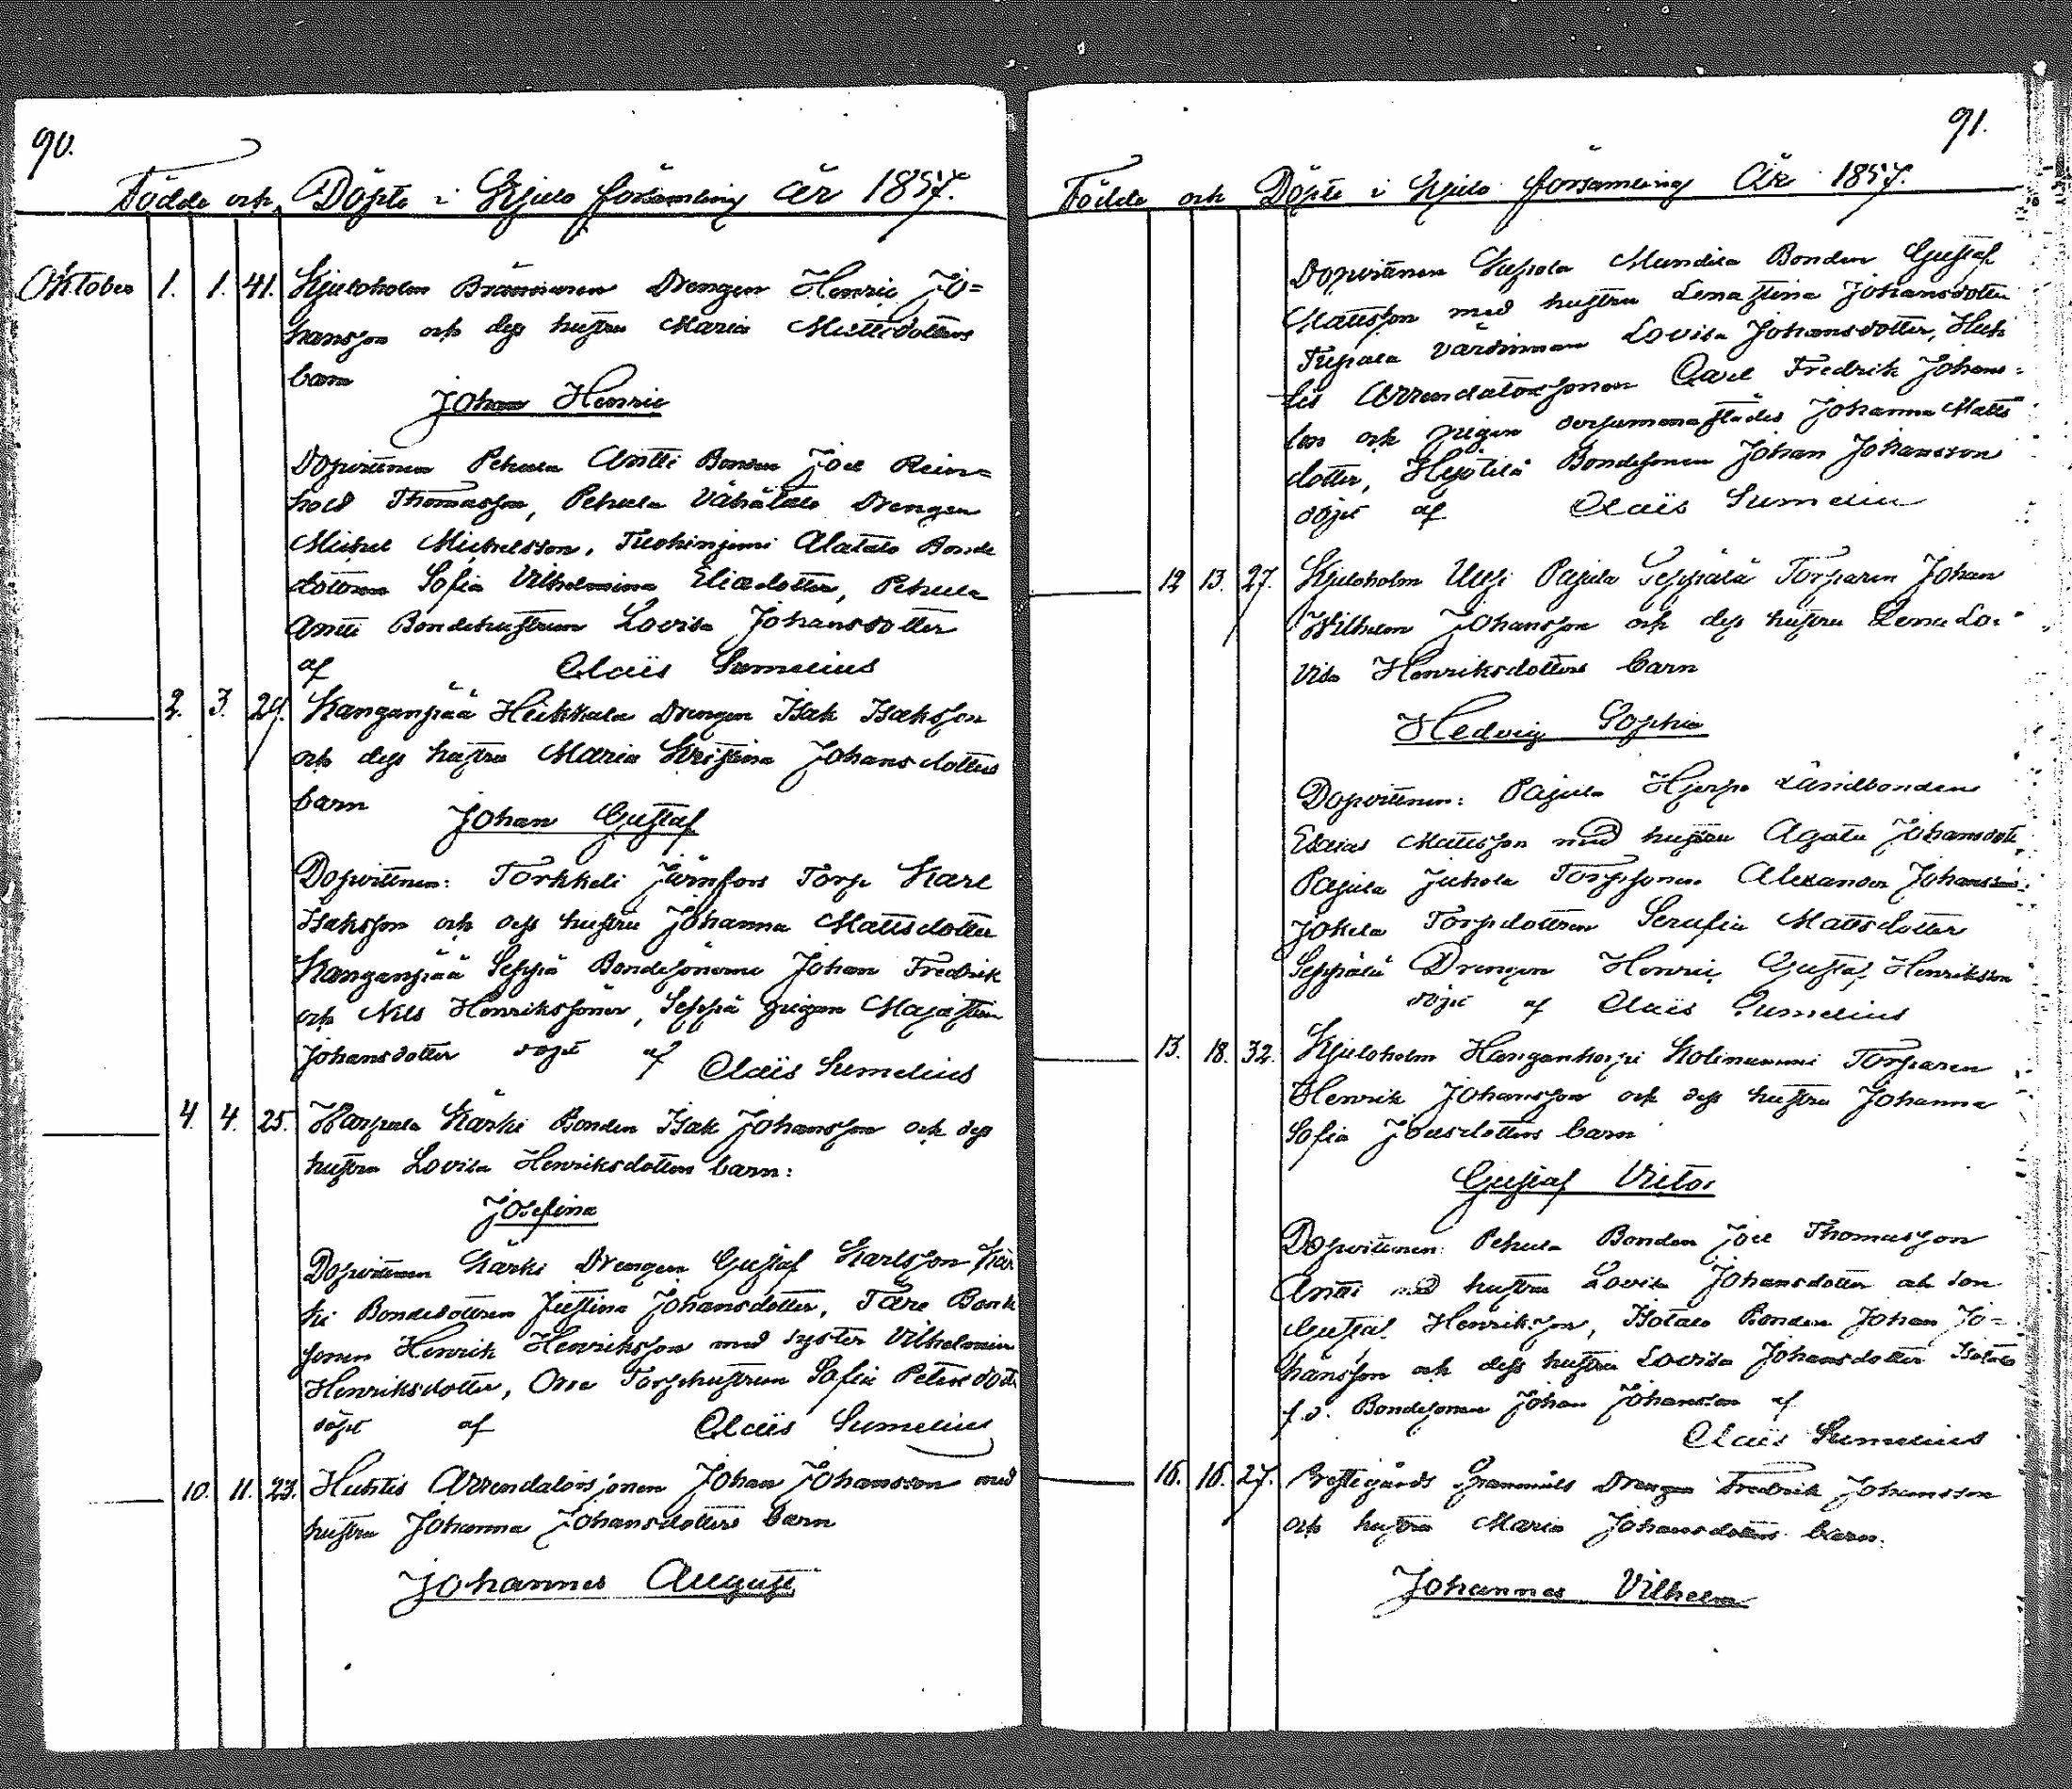 90.
Födde och Döpte i Kjulo församling År 1857.
Oktober 1. 1. 41. Kjuloholm Brännaren Drengen Henric Jo=
hansson och dess hustru Maria Mattsdotters
barn
Johan Henric
Dopvittnen Pehula Antti Bonden Joel Rein=
hold Thomasson, Pehula Vähätalo Drengen
Michel Michelsson, Tuohiniemi Alatalo Bonde
dottren Sofia Vilhelmina Eliædotter, Pehula
Antti Bondehustrun Lovisa Johansdotter
af Claës Sumelius
2. 3. 29. Kanganpää Heikkala Drengen Isak Isaksson
och dess hustru Maria Kristina Johansdotters
barn
Johan Gustaf
Dopvittnen: Torkkeli Järnfors Torp Karl
Isaksson och dess hustru Johanna Mattsdotter
Kanganpää Seppä Bondesönerne Johan Fredrik
och Nils Henrikssöner, Seppä pigan Majastina
Johansdotter döpt af Claës Sumelius
4. 4. 25. Harpula Kärki Bonden Isak Johansson och dess
hustru Lovisa Henriksdotters barn:
Josefina
Dopvittnen Kärki Drengen Gustaf Karlsson Kär
ki Bondedottren Justina Johansdotter, Tare Bonde
sonen Henrik Henriksson med syster Vilhelmin
Henriksdotter, Torphustrun Sofia Petersdott
döpt af Claës Sumelius
10. 11. 23. Huhtis Arrendatorssonen Johan Johansson med
hustru Johanna Johansdotters barn
Johannes August
91.
Födde och Döpte i Kjulo församling År 1857.
Dopvittnen Mundila Bonden Gustaf
Mattsson med hustru Lenastina Johansdotter
värdinnan Lovisa Johansdotter, Huh
tis Arrendatorssonen Carl Fredrik Johans=
son och pigan dersammastädes Johanna Matts
dotter, Bondesonen Johan Johansson
döpt af Claës Sumelius
12 13. 27. Kjuloholm Pajula Seppälä Torparen Johan
Wilhelm Johansson och dess hustru Lena Lo=
visa Henriksdotters barn
Hedvig Sophia
Dopvittnen: Pajula Hjerpe Landbonden
Esaias Mattsson med hustru Agata Johansdott
Pajula Juhola Torpsonen Alexander Johansson
Jokela Torpdottren Serafia Mattsdotter
Seppälä Drengen Henric Gustaf Henriksson
döpt af Claës Sumelius
13. 18. 32. Kjuloholm Torparen
Henrik Johansson och dess hustru Johanna
Sofia Joelsdotters barn
Gustaf Victor
Dopvittnen: Pehula Bonden Joel Thomasson
Antti med hustru Lovisa Johansdotter och son
Gustaf Henriksson, Isotalo Bonden Johan Jo=
hansson och dess hustru Lovisa Johansdotter Isotalo
f.d. Bondesonen Johan Johansson af
Claës Sumelius
16. 16. 27. Prestgårds Drengen Fredrik Johansson
och hustru Maria Johansdotters barn.
Johannes Vilhelm